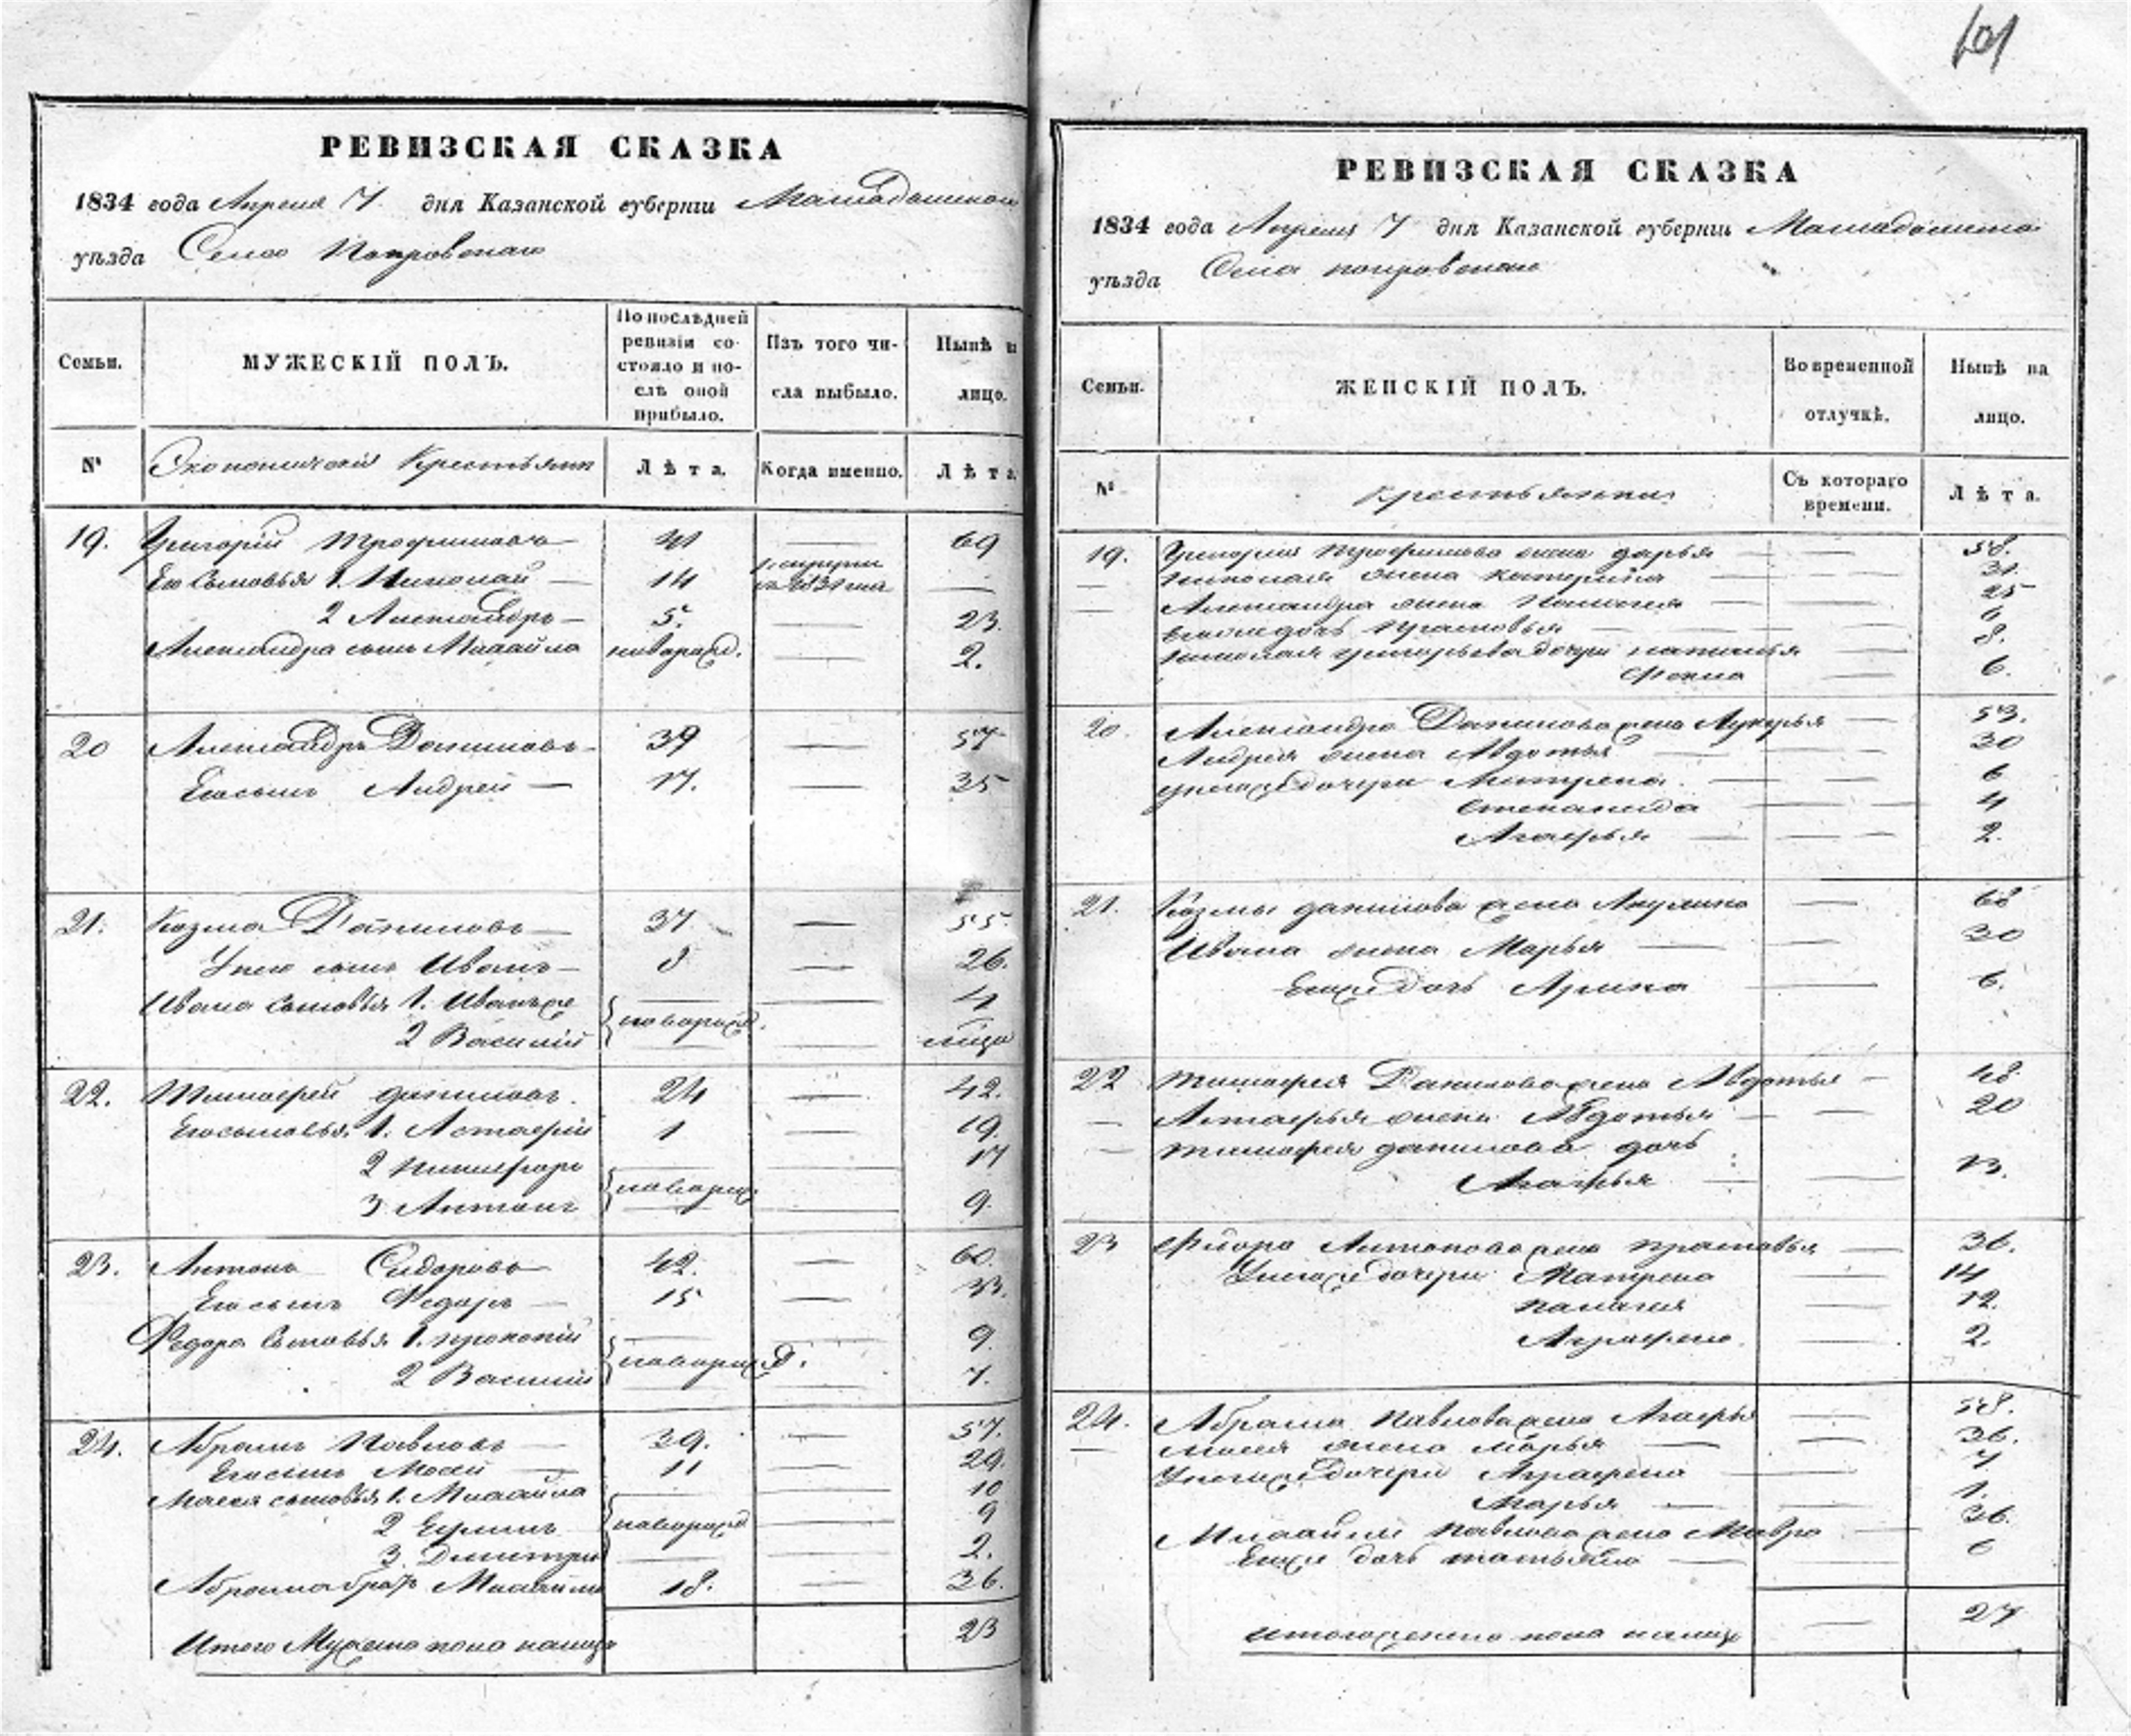 101
РЕВИЗСКАЯ СКАЗКА
1834 года Апреля 7. дня Казанской губерніи Мамадышской
уѣзда Села Покровскаго
Семьи.
МУЖЕСКІЙ ПОЛЪ.
По послѣдней ревизіи состояло и послѣ оной прибыло.
Изъ того числа выбыло.
Нынѣ на лицо.
№ Экономическія Крестьяне Лѣта. Когда именно. Лѣта.
19. Григорій Трофимовъ — 41 — 69
Его Сыновья 1. Николай — 14 —
2 Александръ — 5. — 23.
Александра сынъ Михайла новорожд. — 2.
20 Александръ Даниловъ — 39 — 57
Его сынъ Андрей — 17. — 35
21. Козма Даниловъ — 37. — 55.
У него сынъ Иванъ — 8 — 26.
Ивана Сыновья 1. Иванъ же — — 4
новорожд.
2 Василій —
22. Тимофей Даниловъ. 24 — 42.
Его сыновья. 1. Астафій 1 — 19.
2 Никифоръ — — 17
новорож
3 Антонъ — — 9.
23. Антонъ Сидоровъ 42. — 60.
Его сынъ Федоръ — 15 — 33.
Федора Сыновья 1. Прокопій — — 9.
новорожд.
2 Василій — — 7.
24. Абрамъ Павловъ — 39. — 57.
Его сынъ Мосей — 11 — 29.
Мосея сыновья 1. Михайла — — 10
2 Ефимъ новорожд — 9
3. Дмитри — — 2.
Абрама братъ Михайла 18. — 36.
Итого Мужеска пола налицо 23
РЕВИЗСКАЯ СКАЗКА
1834 года Апреля 7 дня Казанской губерніи Мамадышска
уѣзда Села покровскаго
Семьи.
ЖЕНСКІЙ ПОЛЪ.
Во временной отлучкѣ.
Нынѣ на лицо.
№ Крестьянки Съ котораго времени. Лѣта.
19. Григорія Трофимова жена дарья — — 58.
— Николая жена Катерина — — 31.
— Александра жена Пелагея — — 25
дочь Прасковья — — 6
Николая григорьева дочери наталья — 8.
Фекла — 6.
20. Александра Данилова жена Лукерья — 53.
Андрея жена Авдотья — — 30
у него же дочери Матрена. — — 6
Степанида — — 4
Агафья — — 2.
21. Козмы данилова жена Акулина — 68
Ивана жена Марья — — 30
Ево же дочь Арина — 6.
22 Тимофея Данилова жена Авдотья — 48.
— Астафья жена Авдотья — — 20
— Тимофея данилова дочь
Агафья — — 13.
23 Фйдора Антонова жена прасковья — 36.
У него же дочери Матрена — 14
палагея — 12.
Аграфена. — 2.
24. Абрама Павлова жена Агафья — 58.
— Мосея жена марья — — 36.
У него же дочери Аграфена — — 7
Марья — — 1.
Михайлы Павлова жена Мавра — 36.
Ево же дочь татьяна — — 6
Итого женска пола налицо — 27